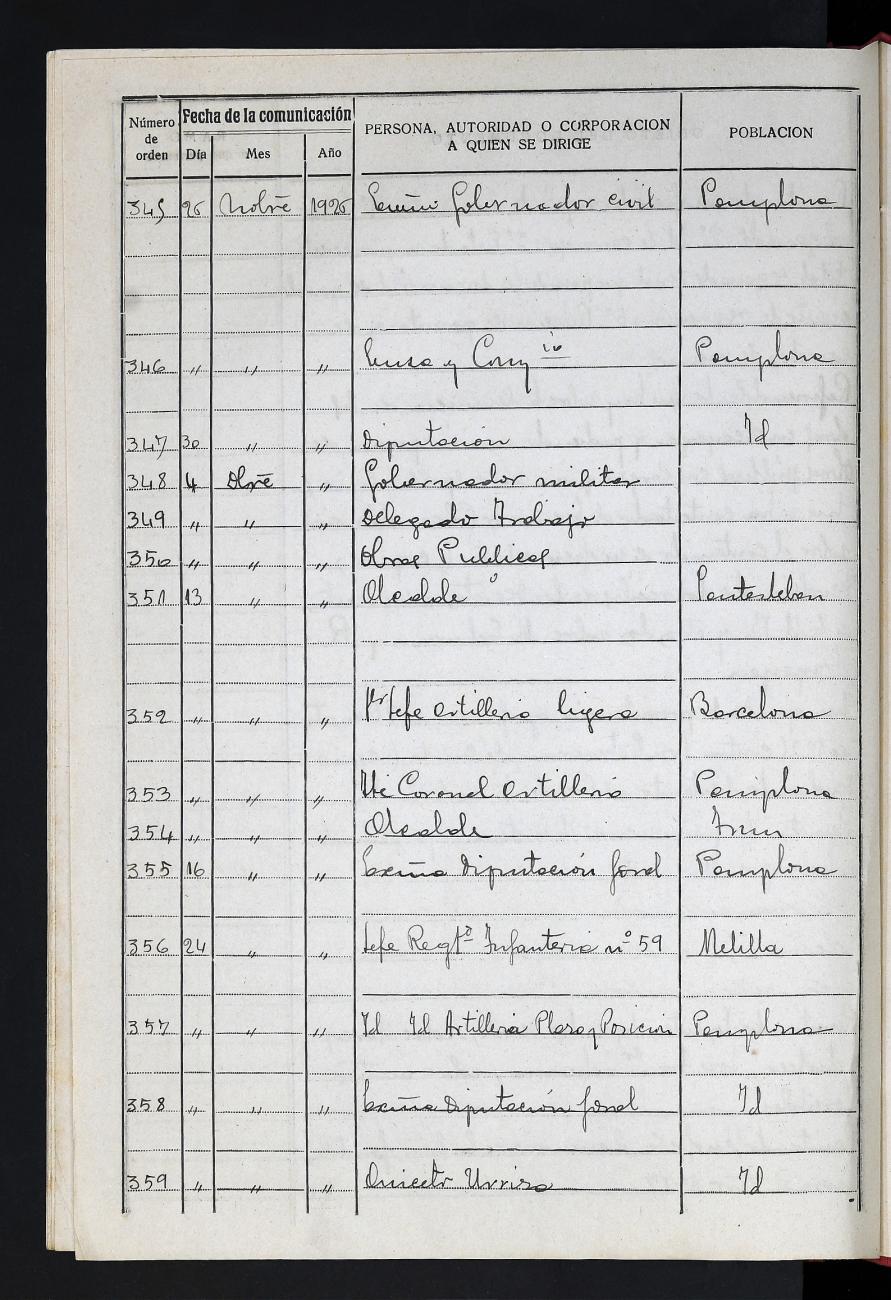 Número de orden | Fecha de la comunicación | PERSONA, AUTORIDAD O CORPORACION A QUIEN SE DIRIGE | POBLACION
Día | Mes | Año
345 26 Nobre 1926 Excmo Gobernador civil Pamplona
346 " " " y Comp ia Pamplona
347 30 " " Diputación Id
348 4 Dbre " Gobernador militar
349 " " " Delegado Trabajo
350 " " " Obras Publicas
351 13 " " Alcalde Santesteban
352 " " " Jefe artilleria ligera Barcelona
353 " " " Tte Coronel artilleria Pamplona
354 " " " Alcalde Irun
355 16 " " Excma Diputación foral Pamplona
356 24 " " Jefe Regto Infanteria nº 59 Melilla
357 " " " Id Id Artilleria Plaza y Posicion Pamplona
358 " " " Excma Diputación foral Id
359 " " " Aniceto Urriza Id